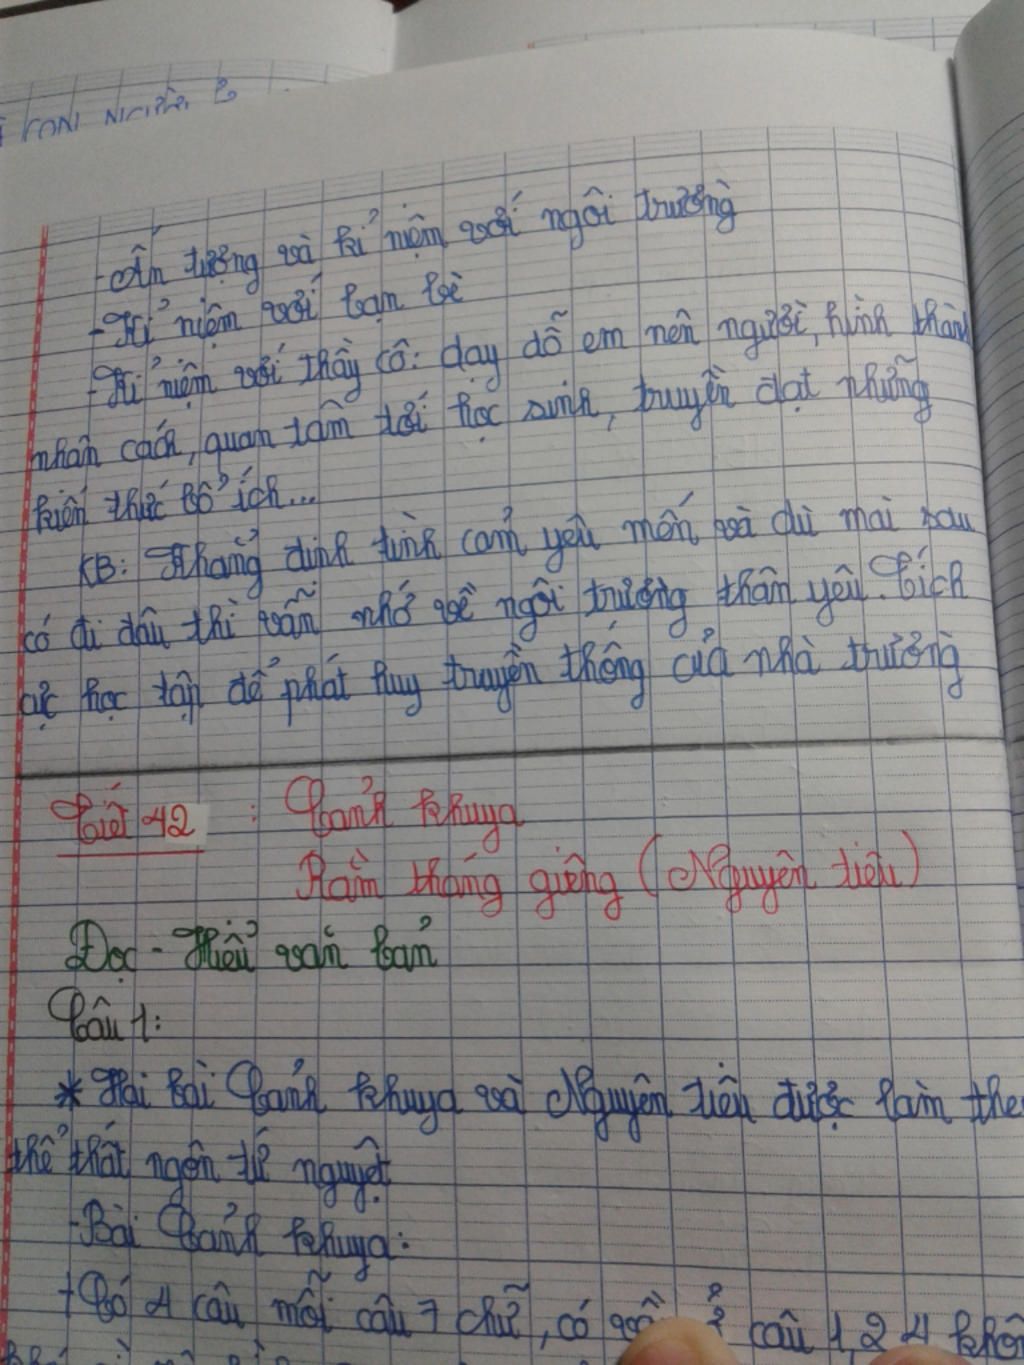 - Ấn tượng và kỉ niệm với ngôi trường
- Kỉ niệm với bạn bè
- Kỉ niệm với thầy cô: dạy dỗ em nên người, hình thàn
nhân cách, quan tâm tới học sinh, truyền đạt những
kiến thức bổ ích...
KB: Khẳng định tình cảm yêu mến và dù mai sau
có đi đâu thì vẫn nhớ về ngôi trường thân yêu. Tích
cực học tập để phát huy truyền thống của nhà trường
Tiết 42 : Cảnh khuya
Rằm tháng giêng (Nguyên tiêu)
Đọc - Hiểu văn bản
Câu 1:
* Hai bài Cảnh khuya và Nguyên tiêu được làm the
thể thất ngôn tứ nguyệt
- Bài Cảnh khuya:
+ Có 4 câu mỗi câu 7 chữ, có vần ở câu 1, 2 4 khôn